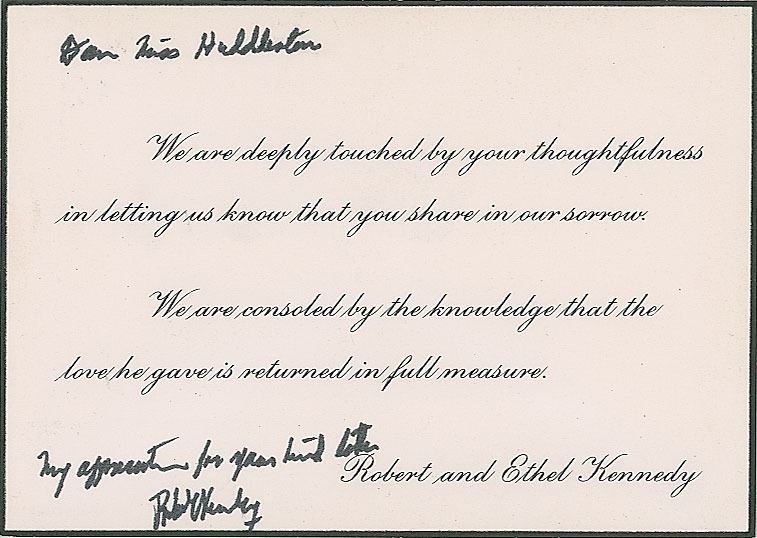 Dear Miss Huddleston
We are deeply touched by your thoughtfulness
in letting us know that you share in our sorrow.
We are consoled by the knowledge that the
love he gave is returned in full measure.
My appreciation for your kind letter
Robert and Ethel Kennedy
Robt Kennedy